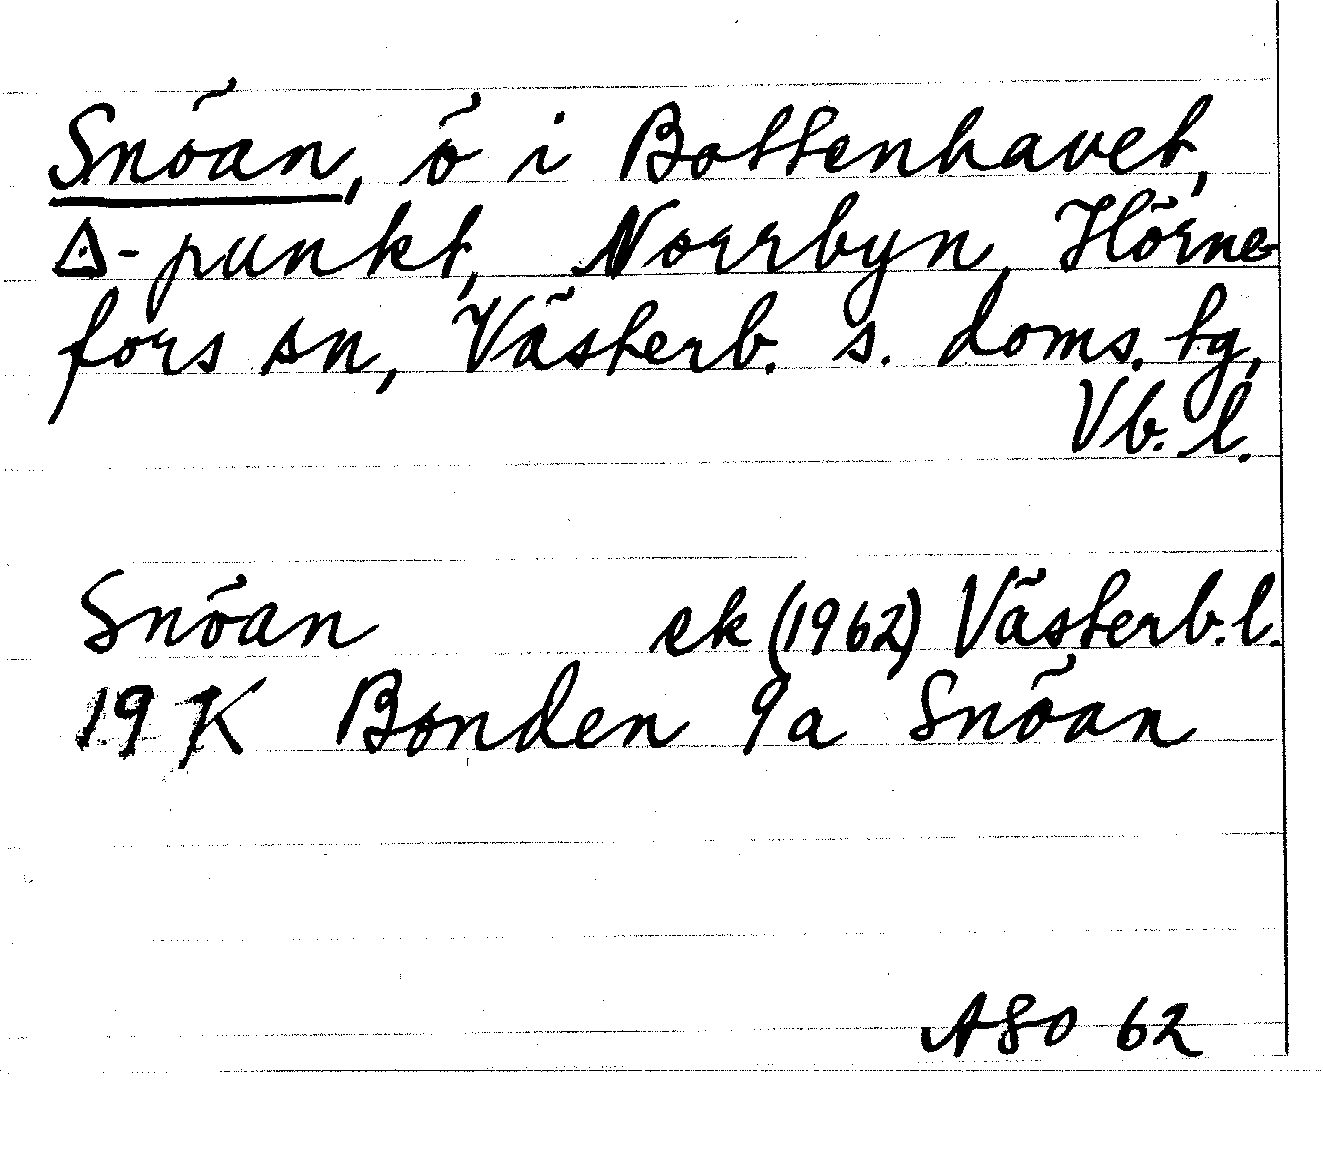 Snöan, ö i Bottenhavet,
△-punkt, Norrbyn, Hörne-
fors sn, Västerb. s. doms. tg,
Vb. l.
Snöan ek (1962) Västerb. l.
19 K Bonden 9a Snöan
ASO 62